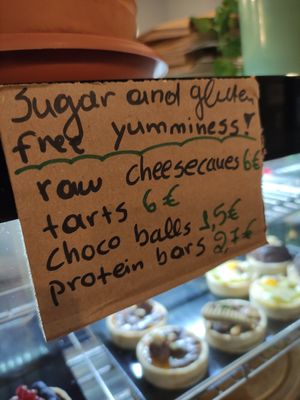 Sugar and gluten
free yumminess!
raw cheesecaues 6€
tarts 6€
choco balls 1,5€
protein bars 2,7€